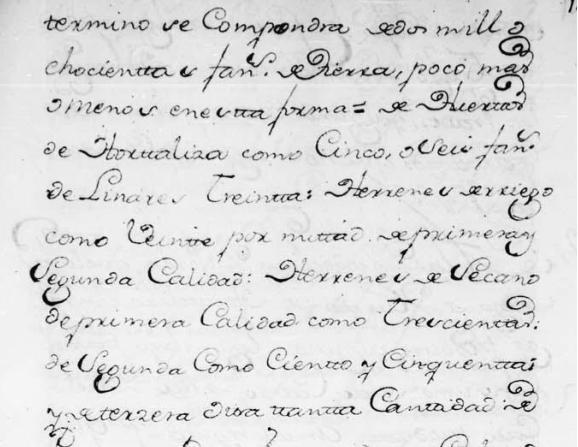 termino se Compondra de dos mill o
chocienttas fan.s de Tierra, poco mas
o menos en estta forma = de Huertas
de Hortaliza como Cinco, o Seis fan.s
de Linares Treintta: Herrenes de rriego
como Veinte por mittad de primera y
Segunda Calidad: Herrenes de Secano
de primera Calidad como Trescienttas:
de Segunda Como Ciento y Cinquentta:
y de terzera otra tantta Canttidad: de